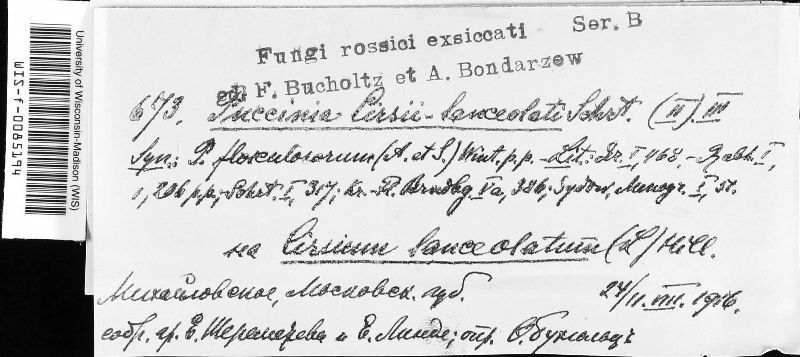 University of Wisconsin-Madison (WIS)
WIS-f-0085194
Fungi rossici exsiccati Ser. B
ed. F. Bucholtz et A. Bondarzew
673. Puccinia Cirsii-lanceolati Schröt. (II) III
Syn.: P. flosculosorum (A. et S.) Wint. p.p. - Lit.: Sr. I, 468, - Rabh. I,
1, 206 p.p, - Schröt. I, 317, Kr.-Fl. Brndbg Va, 386; Sydow, Monogr. I, 51.
на Cirsium lanceolatum (L) Hill.
Михайловское, Московск. губ. 24/11. VIII. 1916.
собр. гр. Е. Шереметева и Е. Линде; опр. Ѳ. Бухгольцъ